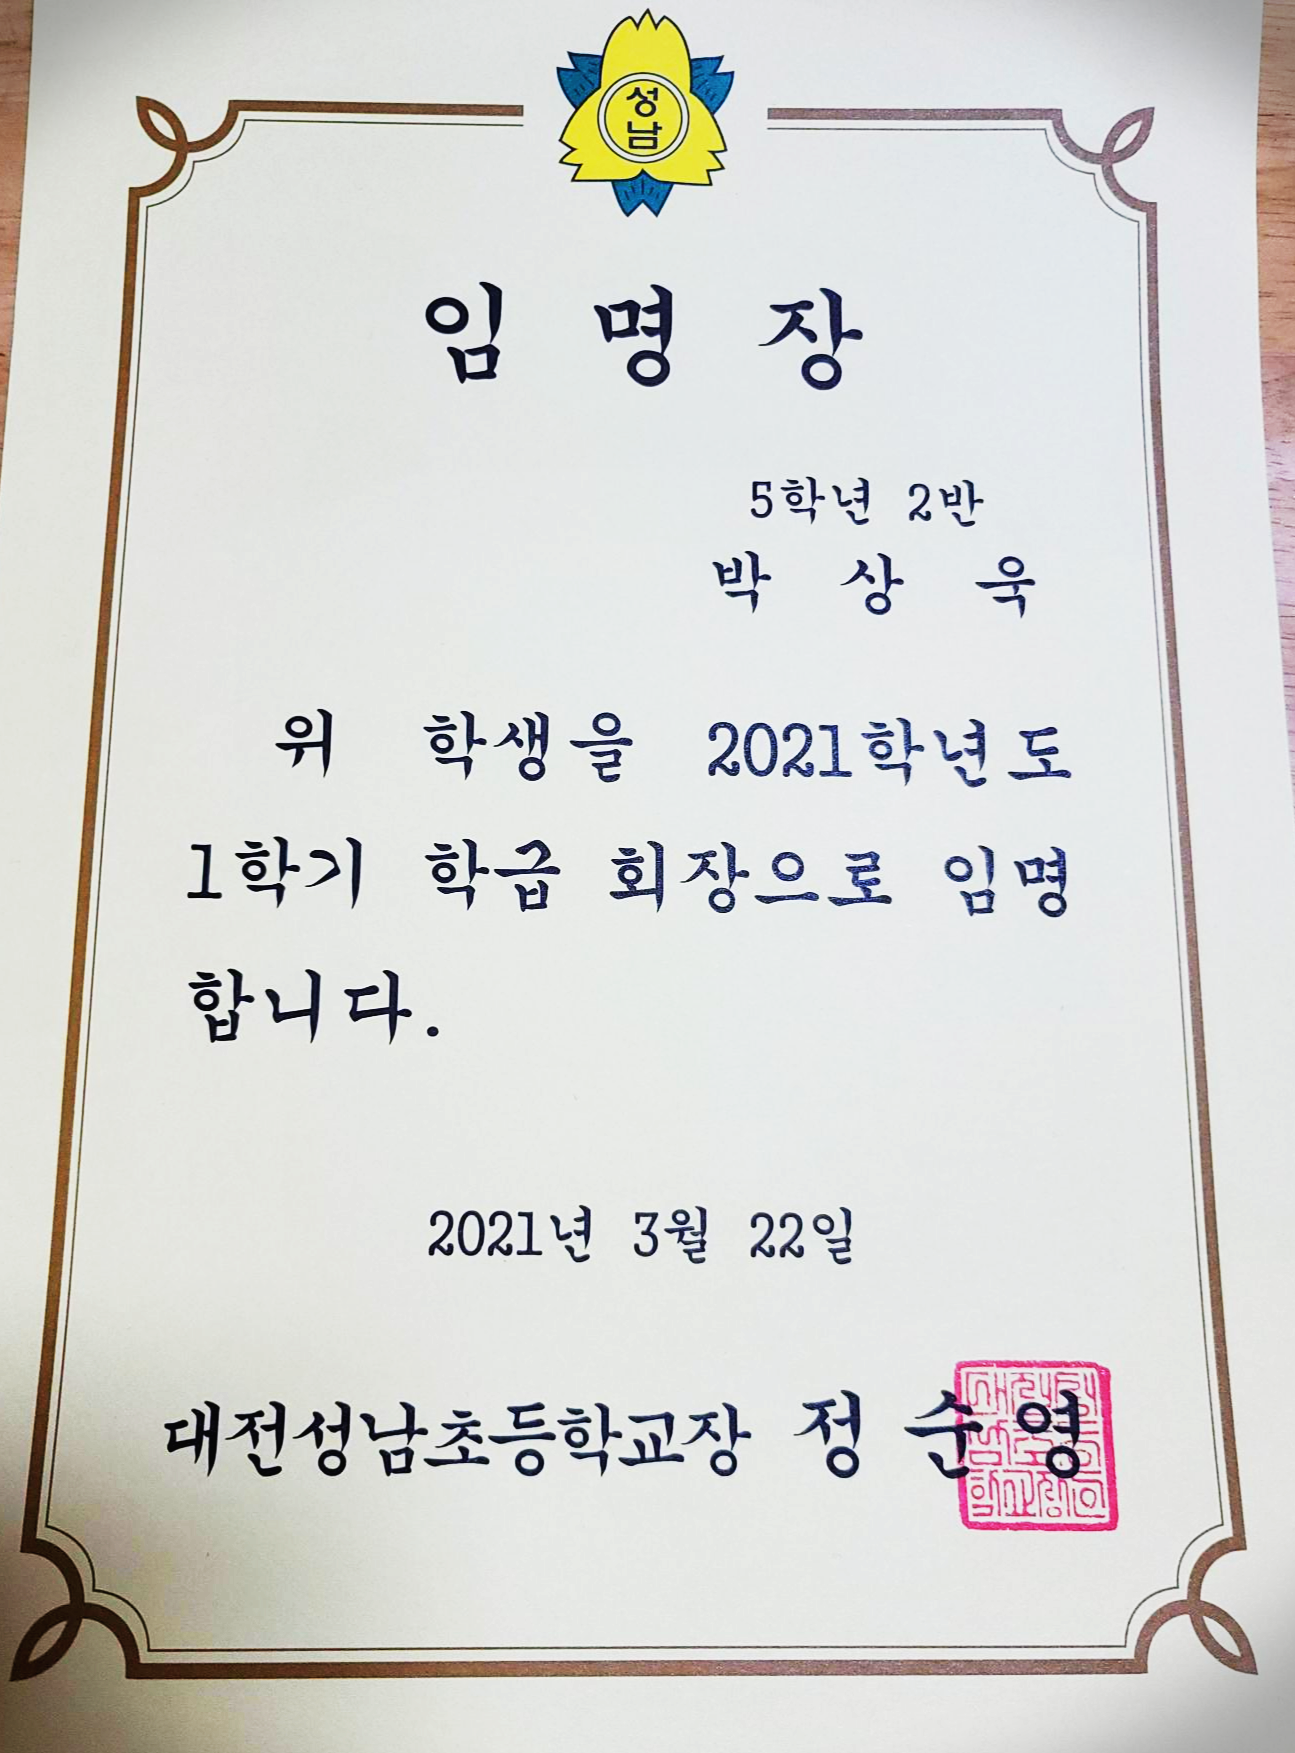 성남
임명장
5학년 2반
박 상 욱
위 학생을 2021학년도
1학기 학급 회장으로 임명
합니다.
2021년 3월 22일
대전성남초등학교장 정 순 영